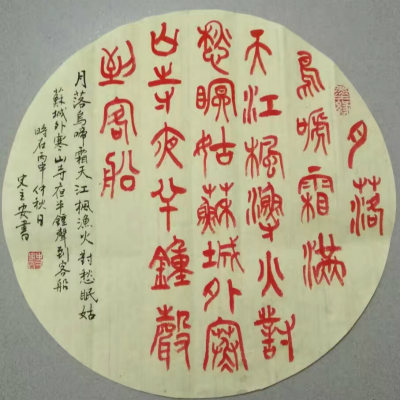 月落
烏啼霜滿
天江楓漁火對
愁眠姑蘇城外寒
山寺夜半鍾聲
到客船
月落烏啼霜天江楓漁火對愁眠姑
蘇城外寒山寺夜半鍾聲到客船
時在丙申仲秋日
史安書